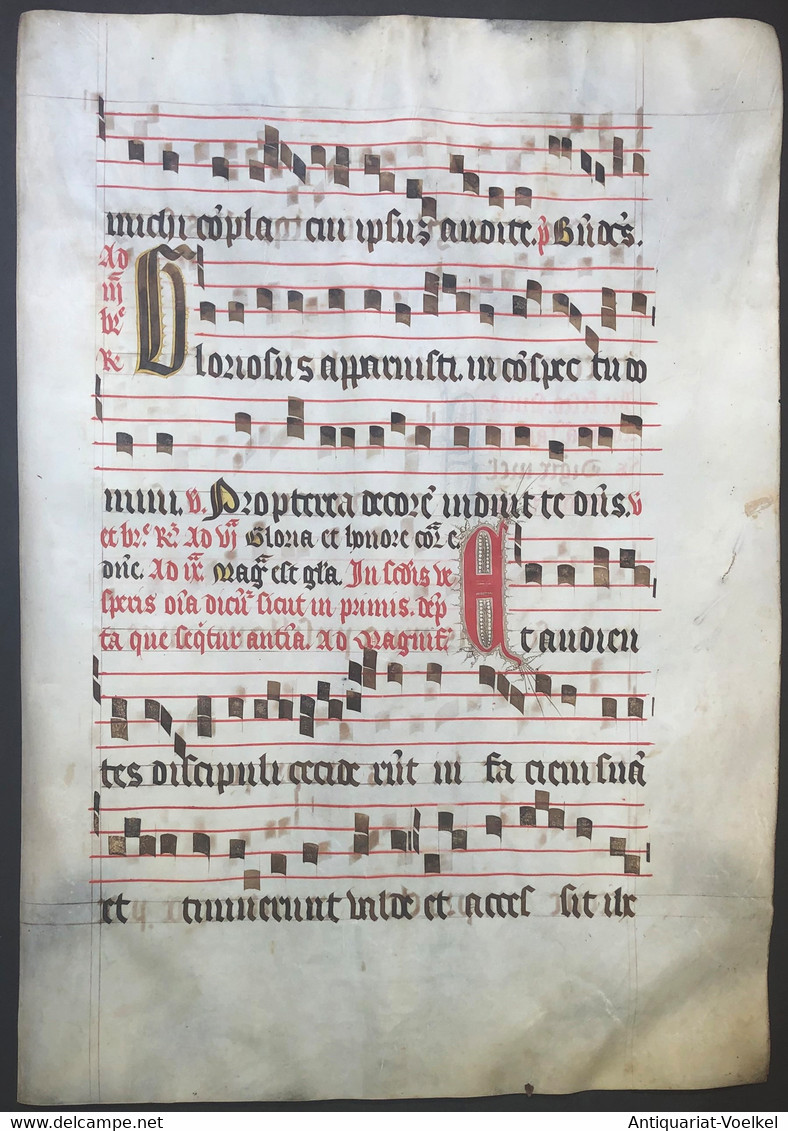 michi cõpla cui ipsus audite. p̃ Bñdẽs.
Ad
iij
brẽ
R̃
Gloriosus apparuisti. in cõspec tu do
mini. v. Propterea decorẽ induit te dñs. v
et brẽ R̃. Ad vj Gloria et honore cor̃ e
Ad ix̃. Magͣ est gl̃a. In scdis ve
speris oĩa dicũtͬ sicut in primis.
ta que seq̃tur antĩa. Ad Magnifͭ Et audien
tes discipuli cecide rũt in fa ciem suã
et timuerunt valde et acces sit ih̃
Antiquariat-Voelkel